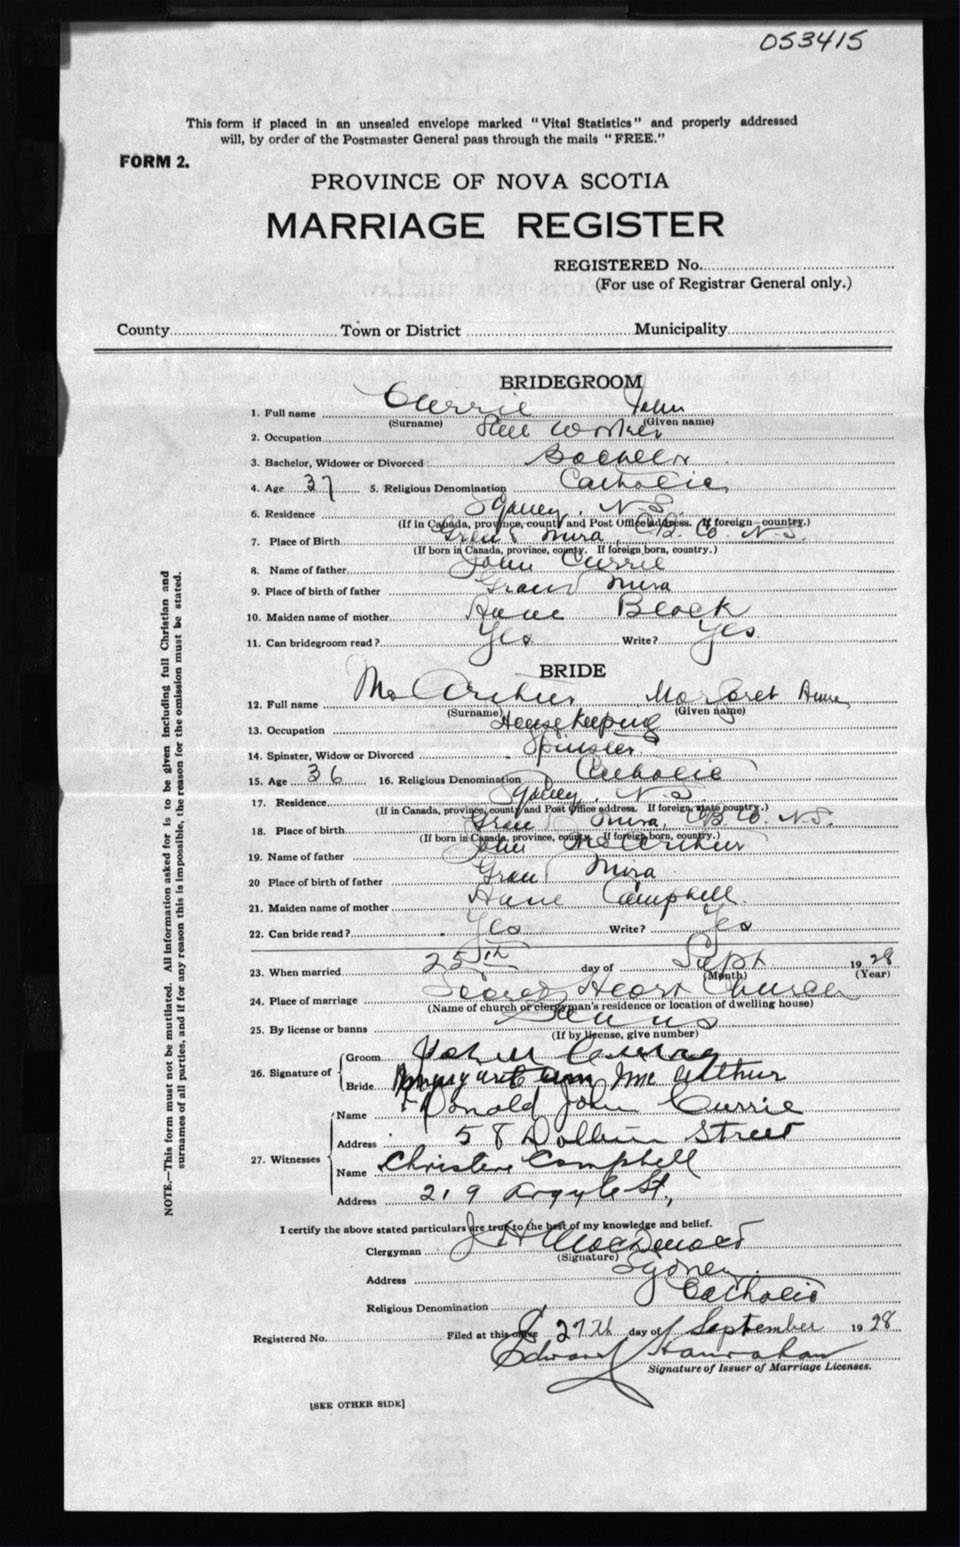 053415
This form if placed in an unsealed envelope marked "Vital Statistics" and properly addressed
will, by order of the Postmaster General pass through the mails "FREE."
FORM 2.
PROVINCE OF NOVA SCOTIA
MARRIAGE REGISTER
REGISTERED No.
(For use of Registrar General only.)
County Town or District Municipality
BRIDEGROOM
1. Full name Currie John
(Surname) (Given name)
2. Occupation Steel Worker
3. Bachelor, Widower or Divorced Bachelor
4. Age 37 5. Religious Denomination Catholic
6. Residence Sydney, N.S.
(If in Canada, province, county and Post Office address. If foreign—country.)
7. Place of Birth Grand Mira, C.B. Co. N.S.
(If born in Canada, province, county. If foreign born, country.)
8. Name of father John Currie
9. Place of birth of father Grand Mira
10. Maiden name of mother Anne Black
11. Can bridegroom read? Yes Write? Yes
BRIDE
12. Full name McArthur Margaret Anne
(Surname) (Given name)
13. Occupation Housekeeping
14. Spinster, Widow or Divorced Spinster
15. Age 36 16. Religious Denomination Catholic
17. Residence Sydney, N.S
(If in Canada, province, county and Post Office address. If foreign, state country.)
18. Place of birth Grand Mira, C.B. Co. N.S.
(If born in Canada, province, county. If foreign born, country.)
19. Name of father John McArthur
20 Place of birth of father Grand Mira
21. Maiden name of mother Anne Campbell
22. Can bride read? Yes Write? Yes
23. When married 25th day of Sept 1928
(Month) (Year)
24. Place of marriage Sacred Heart Church
(Name of church or clergyman's residence or location of dwelling house)
25. By license or banns Banns
(If by license, give number)
26. Signature of Groom John
Bride Margaret ann Mc Arthur
27. Witnesses Name Donald John Currie
Address 58 Street
Name Christene Campbell
Address 219 Argyle St,
I certify the above stated particulars are true to the best of my knowledge and belief.
Clergyman J H MacDonald
(Signature)
Address Sydney
Religious Denomination Catholic
Registered No. Filed at this office 27th day of September 1928
Edward Hanrahan
Signature of Issuer of Marriage Licenses.
[SEE OTHER SIDE]
NOTE.—This form must not be mutilated. All information asked for is to be given including full Christian and
surnames of all parties, and if for any reason this is impossible, the reason for the omission must be stated.